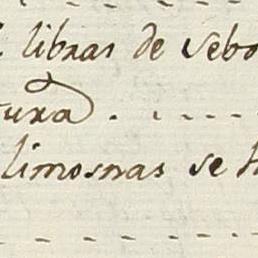 libras de sebo
limosnas se